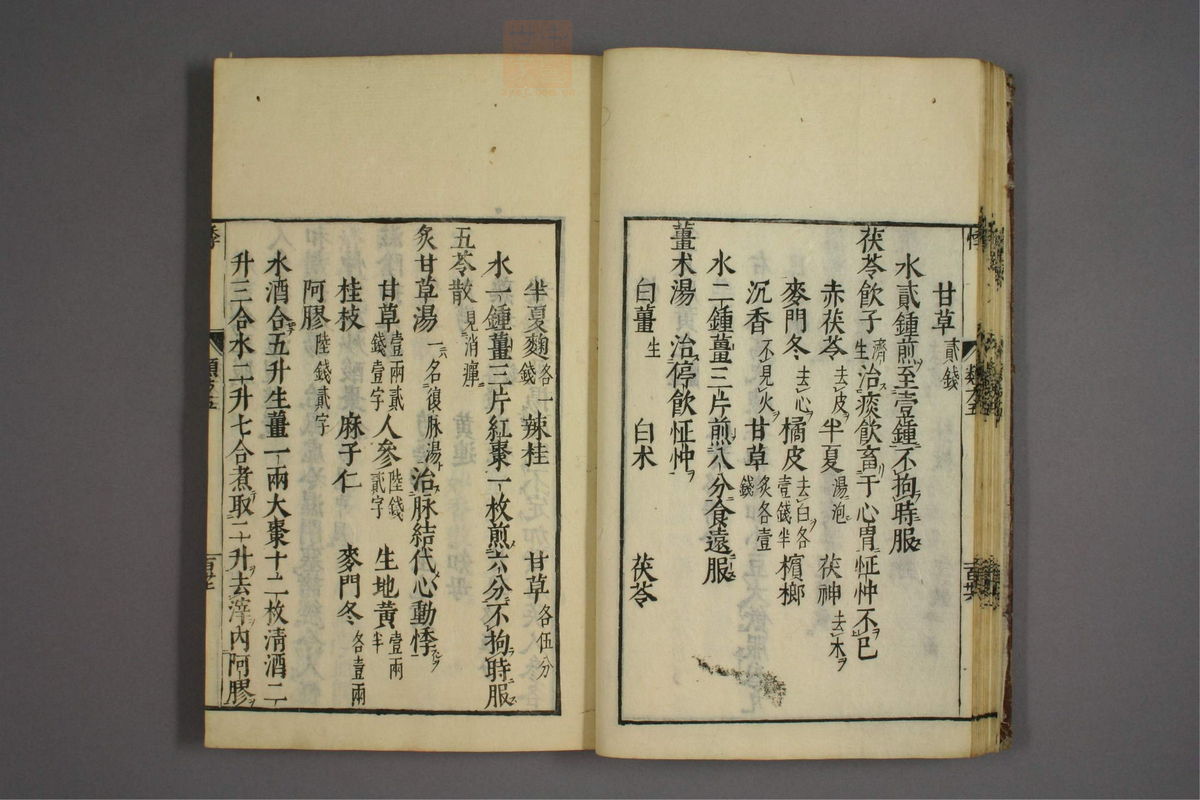 甘草貳錢
水貳鍾煎至壹鍾不拘時服
茯苓飲子濟生治痰飲畜于心胃怔忡不已
赤茯苓去皮半夏湯泡茯神去木
麥門冬去心橘皮去白各壹錢半檳榔
沉香不見火甘草炙各壹錢
水二鍾薑三片煎八分食遠服
薑朮湯治停飲怔忡
白薑生白朮茯苓
半夏麴各一錢辣桂甘草各伍分
水一鍾薑三片紅棗一枚煎六分不拘時服
五苓散見消癉
炙甘草湯一名復脉湯治脉結代心動悸
甘草壹兩貳錢壹字人參陸錢貳字生地黃壹兩半
桂枝麻子仁麥門冬各壹兩
阿膠陸錢貳字
水酒合五升生薑一兩大棗十二枚清酒二
升三合水二升七合煮取二升去滓內阿膠